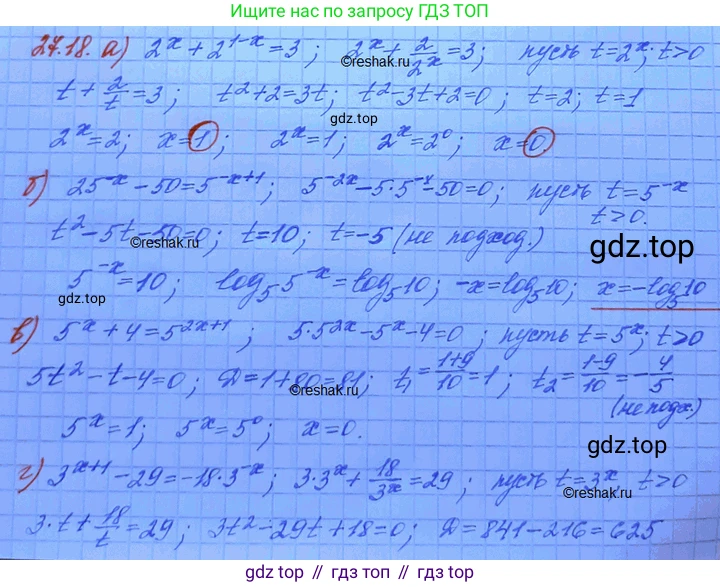 Ищите нас по запросу ГДЗ ТОП
27.18. а) 2^x + 2^{1-x} = 3 ; 2^x + 2/2^x = 3; пусть t = 2^x; t>0
©reshak.ru
t + 2/t = 3 ; t^2 + 2 = 3t ; t^2 - 3t + 2 = 0 ; t = 2; t = 1
gdz.top
2^x = 2; x = 1 ; 2^x = 1; 2^x = 2^0 ; x = 0
©reshak.ru
б) 25^{-x} - 50 = 5^{-x+1}; 5^{-2x} - 5·5^{-x} - 50 = 0; пусть t = 5^{-x}
t>0.
t^2 - 5t - 50 = 0; t = 10; t = -5 (не подход.)
©reshak.ru
gdz.top
5^{-x} = 10; log_5 5^{-x} = log_5 10; -x = log_5 10; x = -log_5 10
gdz.top
в) 5^x + 4 = 5^{2x+1} ; 5·5^{2x} - 5^x - 4 = 0 ; пусть t = 5^x; t>0
5t^2 - t - 4 = 0; D = 1 + 80 = 81; t_1 = (1+9)/10 = 1; t_2 = (1-9)/10 = -4/5
©reshak.ru
(не подх.)
5^x = 1; 5^x = 5^0; x = 0.
gdz.top
г) 3^{x+1} - 29 = -18·3^{-x}; 3·3^x + 18/3^x = 29 ; пусть t = 3^x; t>0
©reshak.ru
3·t + 18/t = 29; 3t^2 - 29t + 18 = 0; D = 841 - 216 = 625
gdz.top // gdz.top // gdz.top